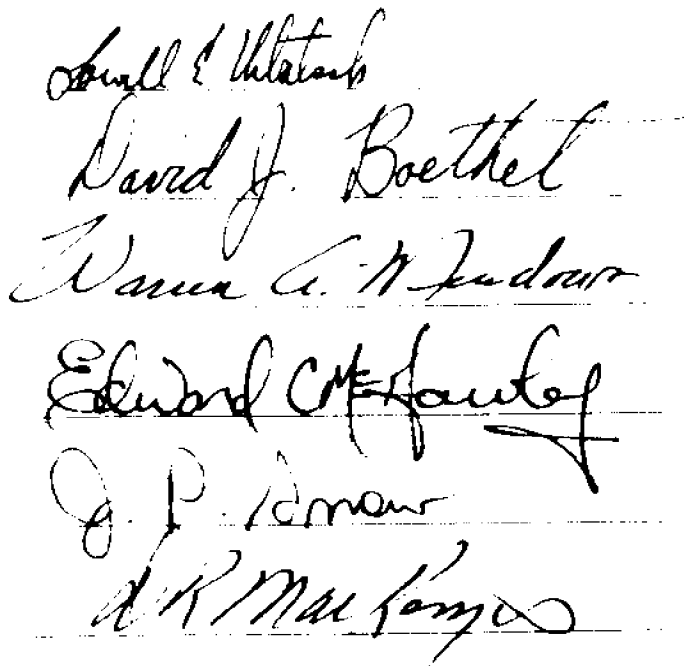 Lowell E
David J. Boethel
Warren A. Meadows
Edward C McHawley
J. P. Snow
D R MacKenzie